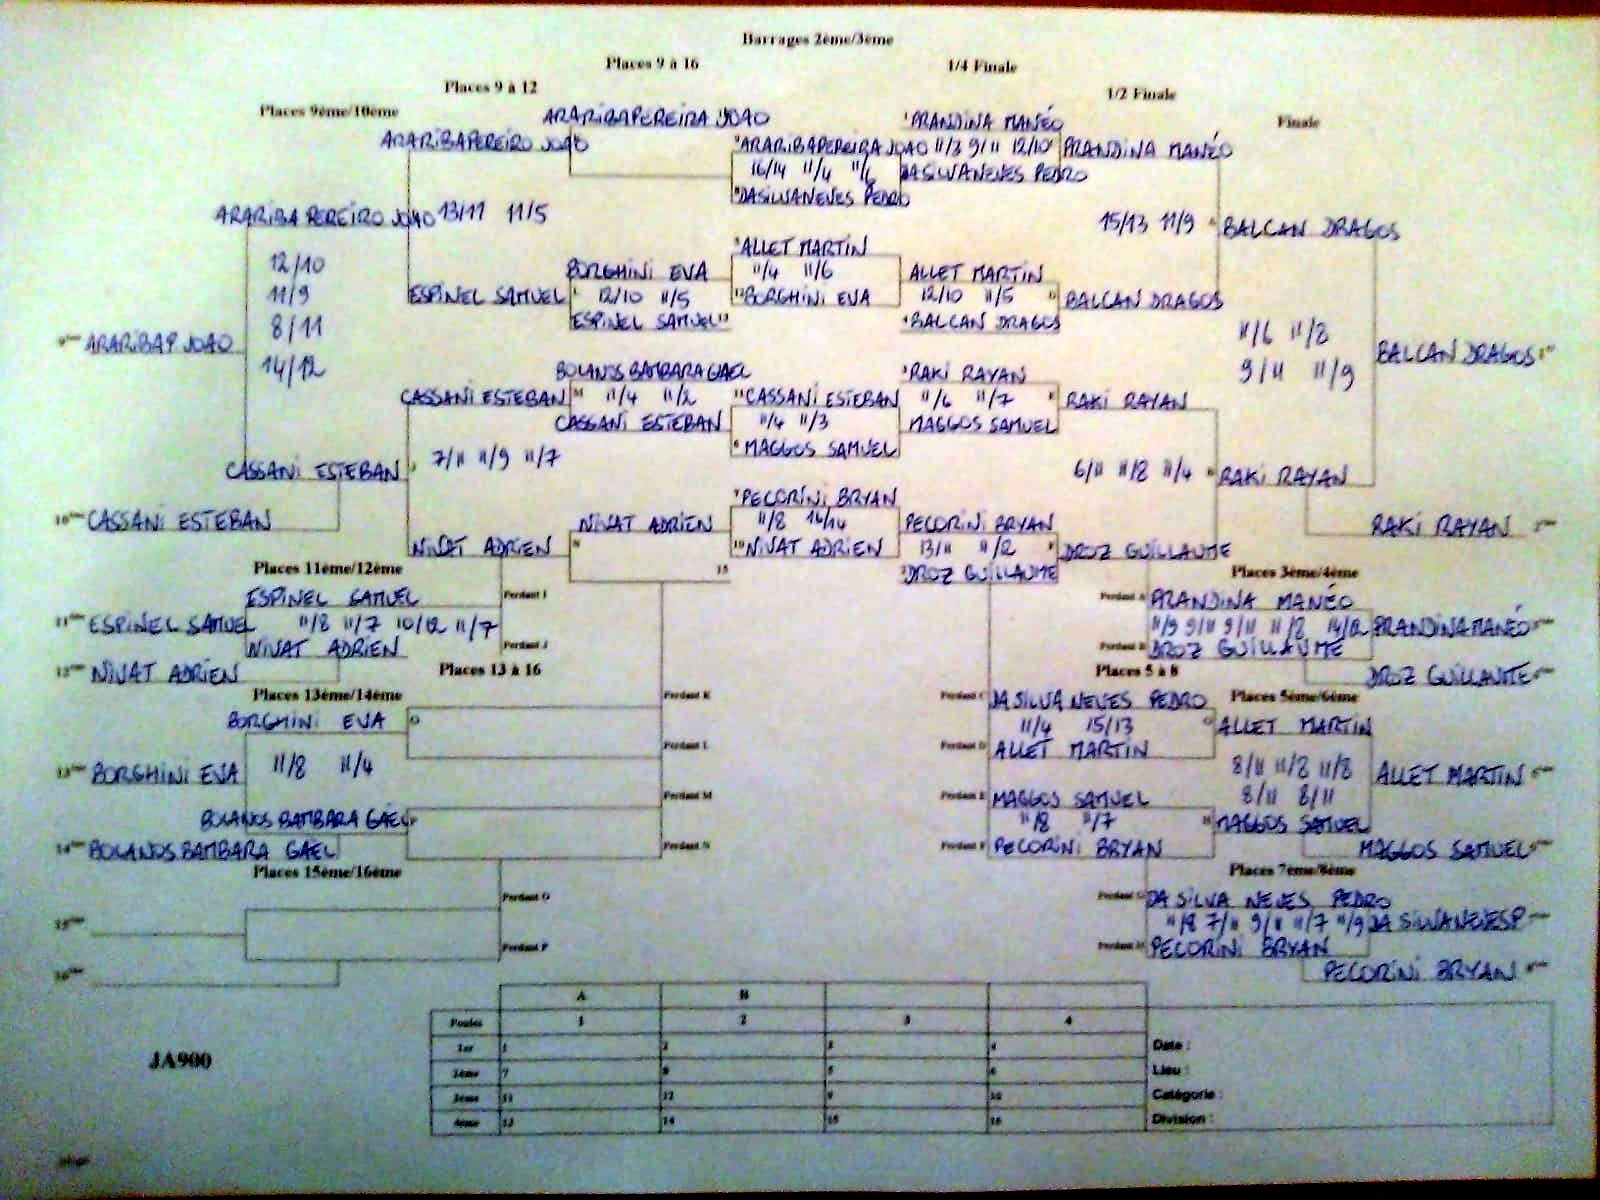 Barrages 2ème/3ème
Places 9 à 16
1/4 Finale
Places 9 à 12
1/2 Finale
Places 9ème/10ème
Finale
ARARIBAPEREIRA JOAO
PRANDINA MANÉO
ARARIBAPEREIRO JOAO
ARARIBAPEREIRA JOAO 11/3 9/11 12/10 PRANDINA MANÉO
16/14 11/4 11/6 DASILVANEVES PEDRO
DASILVANEVES PEDRO
ARARIBA PEREIRO JOAO 13/11 11/5
15/13 11/9 BALCAN DRAGOS
ALLET MARTIN
12/10
BORGHINI EVA 11/4 11/6 ALLET MARTIN
11/9
ESPINEL SAMUEL 12/10 11/5 BORGHINI EVA 12/10 11/5 BALCAN DRAGOS
8/11
ESPINEL SAMUEL BALCAN DRAGOS
11/6 11/8
ARARIBAP JOAO
BALCAN DRAGOS
14/12
BOLANOS BAMBARA GAEL RAKI RAYAN
9/11 11/9
CASSANI ESTEBAN 11/4 11/2 CASSANI ESTEBAN 11/6 11/7 RAKI RAYAN
CASSANI ESTEBAN 11/4 11/3 MAGGOS SAMUEL
MAGGOS SAMUEL
7/11 11/9 11/7
CASSANI ESTEBAN
6/11 11/8 11/4 RAKI RAYAN
PECORINI BRYAN
CASSANI ESTEBAN
NIVAT ADRIEN 11/8 16/14 PECORINI BRYAN
RAKI RAYAN
NIVAT ADRIEN NIVAT ADRIEN 13/11 11/2 DROZ GUILLAUME
15 DROZ GUILLAUME
Places 11ème/12ème
Places 3ème/4ème
ESPINEL SAMUEL Perdant I
Perdant A PRANDINA MANÉO
ESPINEL SAMUEL 11/8 11/7 10/12 11/7
11/9 9/11 9/11 11/8 14/12 PRANDINA MANÉO
NIVAT ADRIEN Perdant J
Perdant B DROZ GUILLAUME
NIVAT ADRIEN
Places 13 à 16
Places 5 à 8
DROZ GUILLAUME
Places 13ème/14ème
Perdant K
Perdant C DA SILVA NEVES PEDRO
Places 5ème/6ème
BORGHINI EVA O
11/4 15/13 G ALLET MARTIN
Perdant L
Perdant D ALLET MARTIN
BORGHINI EVA 11/8 11/4
8/11 11/8 11/8 ALLET MARTIN
Perdant M
Perdant E MAGGOS SAMUEL
8/11 8/11
BOLANOS BAMBARA GAËL P
11/8 11/7 H MAGGOS SAMUEL
BOLANOS BAMBARA GAËL
Perdant N
Perdant F PECORINI BRYAN
MAGGOS SAMUEL
Places 15ème/16ème
Places 7ème/8ème
Perdant O
Perdant G DA SILVA NEVES PEDRO
7/11 9/11 11/7 11/9 DA SILVANEVESP
Perdant P
Perdant H PECORINI BRYAN
PECORINI BRYAN
A B
Poules 1 2 3 4
1er 1 2 3 4 Date :
2ème 7 8 5 6 Lieu :
3ème 11 12 9 10 Catégorie :
4ème 13 14 15 16 Division :
JA900